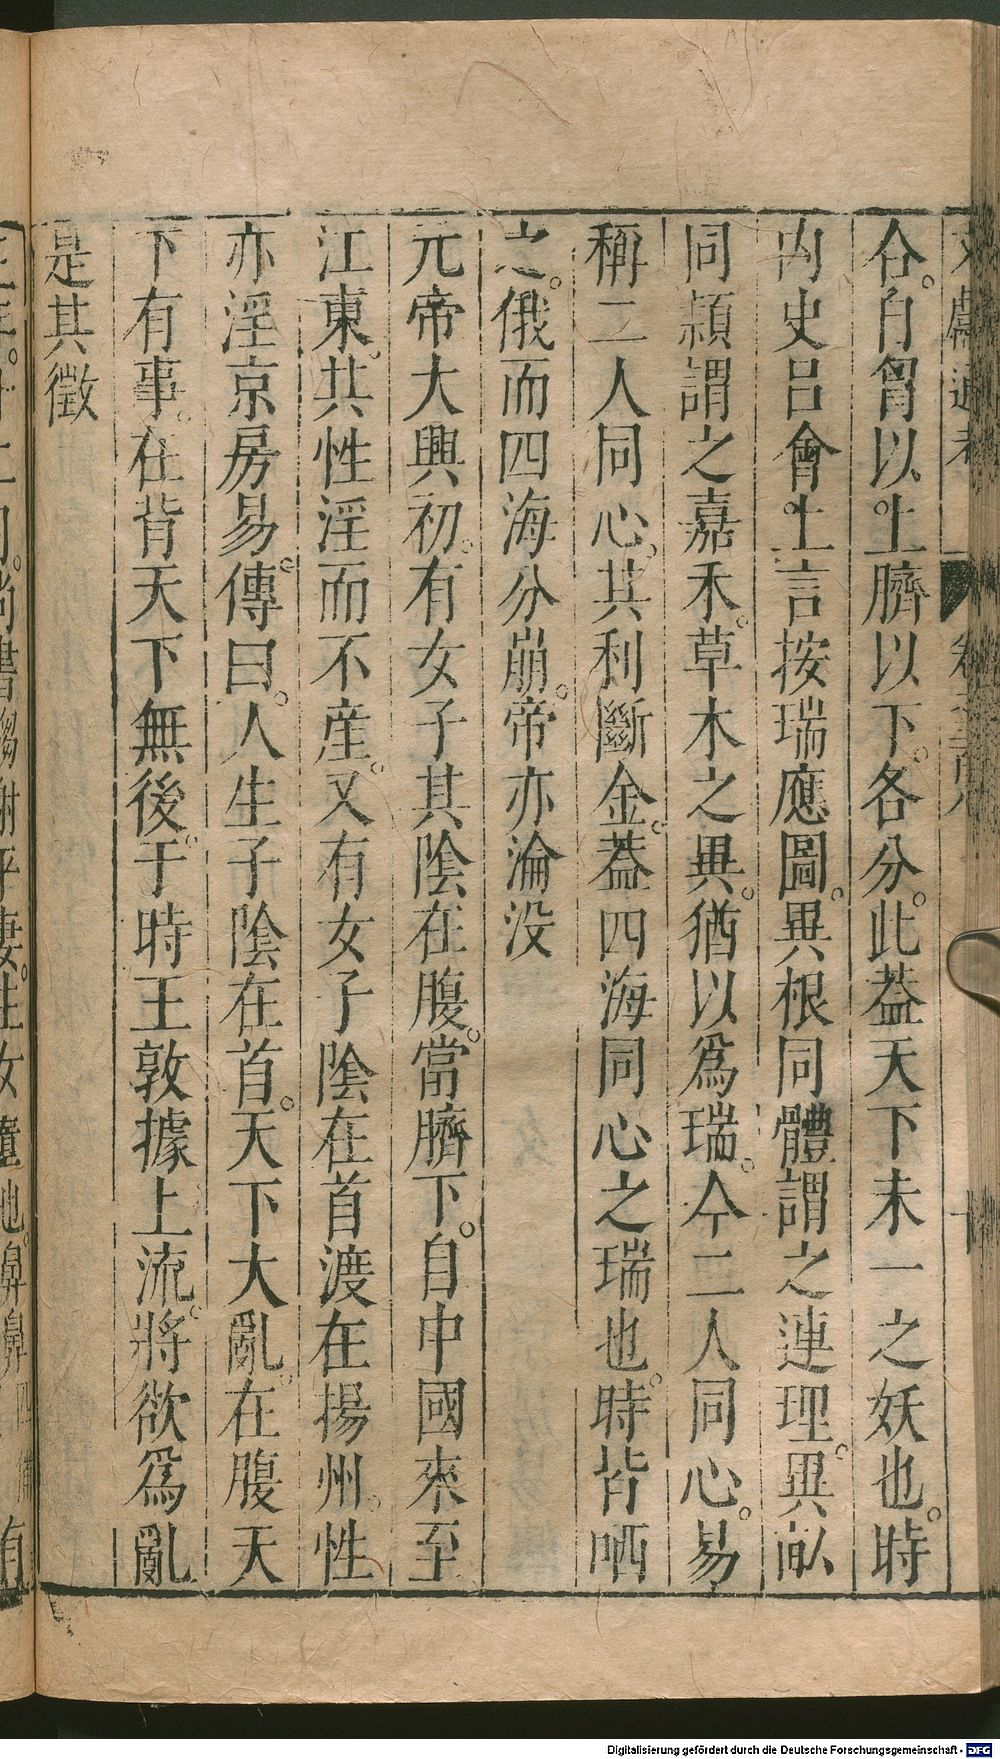 合。自胷以上臍以下。各分。此葢天下未一之妖也。時
內史呂會上言按瑞應圖。異根同體謂之連理。異畝
同穎謂之嘉禾。草木之異。猶以爲瑞。今二人同心。易
稱二人同心。其利斷金。葢四海同心之瑞也。時皆哂
之。俄而四海分崩。帝亦淪没
元帝大興初。有女子其陰在腹。當臍下。自中國來至
江東。其性淫而不產。又有女子陰在首渡在揚州。性
亦淫京房易。傳曰。人生子陰在首。天下大亂。在腹天
下有事。在背天下無後。于時王敦據上流。將欲爲亂
是其徵
Digitalisierung gefördert durch die Deutsche Forschungsgemeinschaft - DFG